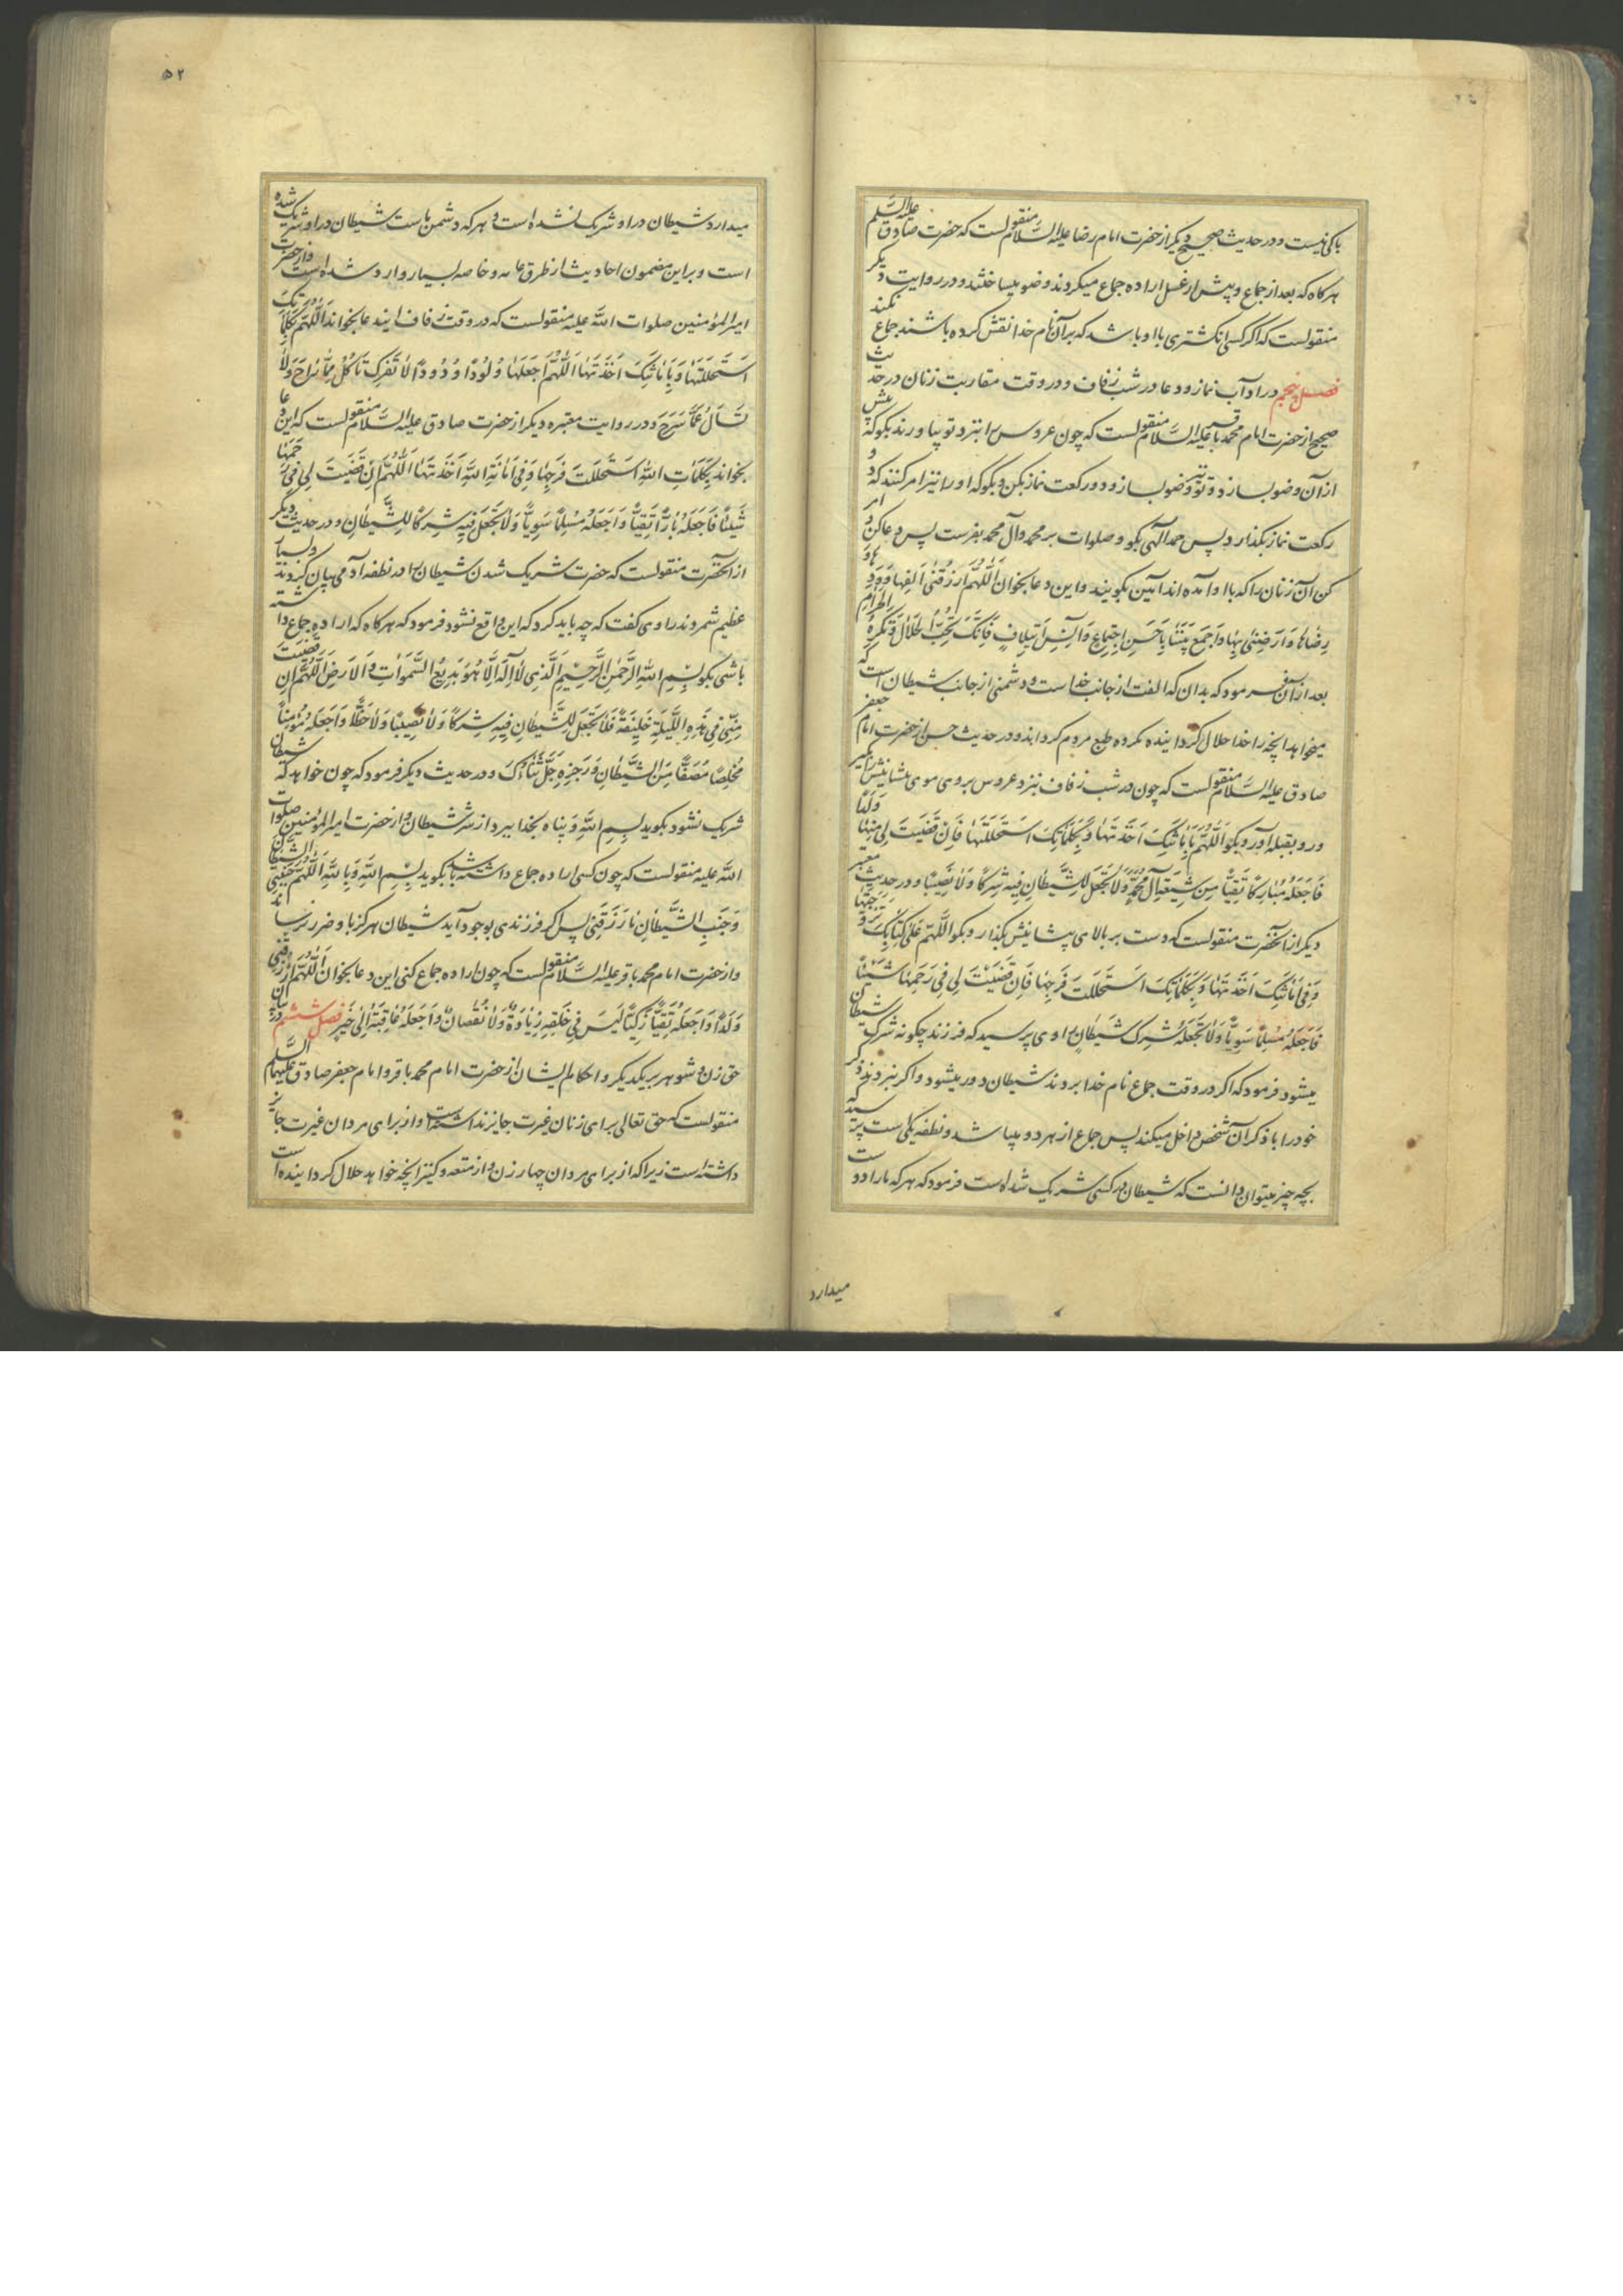 باکی نیست و در حدیث صحیح دیگر از حضرت امام رضا علیه السلام منقولست که حضرت صادق علیه السلم
هرکاه که بعد از جماع و پیش از غسل اراده جماع میکردند وضو میساختند و در روایت دیکر
منقولست که اکر کسی انکشتری با او باشد که بر آن نام خدا نقش کرده باشند جماع نکند
فصل پنجم در اداب نماز و دعا در شب زفاف و در وقت مقاربت زنان در حدیث
صحیح از حضرت امام محمد باقر علیه السلام منقولست که چون عروس را بنزد تو بیاورند بکو که پیش
از آن وضو بسازد و تو نیز وضو بساز و دو رکعت نماز بکن و بکو که او را نیز امر کنند که دو
رکعت نماز بکذارد پس حمد الهی بکو و صلوات بر محمد و آل محمد بفرست پس دعا کن و امر
کن آن زنان را که با او آمده اند آمین بکویند و این دعا بخوان اَللّٰهُمَّ ارْزُقْنی اِلْفَها وَ وُدَّها وَ
رِضٰاها وَ اَرْضِنی بِهٰا وَ اجْمَعْ بَیْنَنٰا بِاَحْسَنِ اجْتِمٰاعٍ وَ آنَسِ ایتِلٰافٍ فَاِنَّکَ تُحِبُّ الْحَلٰالَ وَ تَکْرَهُ الْحَرٰامَ
بعد از آن فرمود که بدان که الفت از جانب خداست و دشمنی از جانب شیطان است که
میخواهد آنچه را خدا حلال کردانیده مکروه طبع مردم کرداند و در حدیث حسن از حضرت امام جعفر
صادق علیه السلام منقولست که چون در شب زفاف بنزد عروس بروی موی پیشانیش بکیر
و رو بقبله آور و بکو اَللّٰهُمَّ بِاَمٰانَتِکَ اَخَذْتُهٰا وَ بِکَلِمٰاتِکَ اسْتَحْلَلْتُهٰا فَاِنْ قَضَیْتَ لی مِنْهٰا وَلَدًا
فَاجْعَلْهُ مُبٰارَکًا تَقِیًّا مِنْ شیعَةِ آلِ مُحَمَّدٍ وَ لٰا تَجْعَلْ لِلشَّیْطٰانِ فیهِ شِرْکًا وَ لٰا نَصیبًا و در حدیث معتبر
دیکر از آنحضرت منقولست که دست بر بالای پیشانیش بکذارد و بکو اللّٰهُمَّ عَلیٰ کِتٰابِکَ تَزَوَّجْتُهٰا
وَ فی اَمٰانَتِکَ اَخَذْتُهٰا وَ بِکَلِمٰاتِکَ اسْتَحْلَلْتُ فَرْجَهٰا فَاِنْ قَضَیْتَ لی فی رَحِمِهٰا شَیْئًا
فَاجْعَلْهُ مُسْلِمًا سَوِیًّا وَ لٰا تَجْعَلْهُ شِرْکَ شَیْطٰانٍ راوی پرسید که فرزند چکونه شرک شیطان
میشود فرمود که اکر در وقت جماع نام خدا بروند شیطان دور میشود و اکر نبرند ذکر
خود را با ذکر آن شخص داخل میکند پس جماع از هر دو میباشد و نطفه یکی است پرسید که
بچه چیز میتوان دانست که شیطان در کسی شریک شده است فرمود که هر که ما را دوست
میدارد
۵۲
میدارد شیطان در او شریک نشده است و هر که دشمن ماست شیطان در او شریک شده
است و بر این مضمون احادیث از طرق عامه و خاصه بسیار وارد شده است و از حضرت
امیرالمؤمنین صلوات الله علیه منقولست که در وقت زفاف این دعا بخواند اَللّٰهُمَّ بِکَلِمٰاتِکَ
اسْتَحْلَلْتُهٰا وَ بِاَمٰانَتِکَ اَخَذْتُهٰا اَللّٰهُمَّ اجْعَلْهٰا وَلُودًا وَدُودًا لٰا تَفْرَکُ تَاْکُلُ مِمّٰا رٰاحَ وَ لٰا
تَسْاَلُ عَمّٰا سَرَحَ و در روایت معتبره دیکر از حضرت صادق علیه السلام منقولست که این دعا
بخواند بِکَلِمٰاتِ اللّٰهِ اسْتَحْلَلْتُ فَرْجَهٰا وَ فی اَمٰانَةِ اللّٰهِ اَخَذْتُهٰا اَللّٰهُمَّ اِنْ قَضَیْتَ لی فی رَحِمِهٰا
شَیْئًا فَاجْعَلْهُ بٰارًّا تَقِیًّا وَ اجْعَلْهُ مُسْلِمًا سَوِیًّا وَ لٰا تَجْعَلْ فیهِ شِرْکًا لِلشَّیْطٰانِ و در حدیث دیگر
از آنحضرت منقولست که حضرت شریک شدن شیطان را در نطفه آدمی بیان کردند و بسیار
عظیم شمردند راوی کفت که چه باید کرد که این واقع نشود فرمود که هرکاه که اراده جماع داشته
باشی بکو بِسْمِ اللّٰهِ الرَّحْمٰنِ الرَّحیمِ الَّذی لٰا اِلٰهَ اِلّٰا هُوَ بَدیعُ السَّمٰوٰاتِ وَ الْاَرْضِ اَللّٰهُمَّ اِنْ قَضَیْتَ
مِنّی فی هٰذِهِ اللَّیْلَةِ خَلیفَةً فَلٰا تَجْعَلْ لِلشَّیْطٰانِ فیهِ شِرْکًا وَ لٰا نَصیبًا وَ لٰا حَظًّا وَ اجْعَلْهُ مُؤْمِنًا
مُخْلِصًا مُصَفًّا مِنَ الشَّیْطٰانِ وَ رِجْزِهِ جَلَّ ثَنٰاؤُکَ و در حدیث دیکر فرمود که چون خواهد که شیطان
شریک نشود بکوید بِسْمِ اللّٰهِ و پناه بخدا ببرد از شر شیطان و از حضرت امیرالمؤمنین صلوات
الله علیه منقولست که چون کسی اراده جماع داشته باشد بکوید بِسْمِ اللّٰهِ وَ بِاللّٰهِ اَللّٰهُمَّ جَنِّبْنی الشَّیْطٰانَ
وَ جَنِّبِ الشَّیْطٰانَ مٰا رَزَقْتَنی پس اکر فرزندی بوجود آید شیطان هرکز باو ضرر نرساند
و از حضرت امام محمد باقر علیه السلام منقولست که چون اراده جماع کنی این دعا بخوان اَللّٰهُمَّ ارْزُقْنی
وَلَدًا وَ اجْعَلْهُ تَقِیًّا زَکِیًّا لَیْسَ فی خَلْقِهِ زِیٰادَةٌ وَ لٰا نُقْصٰانٌ وَ اجْعَلْ عٰاقِبَتَهُ اِلیٰ خَیْرٍ فصل ششم در بیان
حق زن و شوهر بر یکدیکر و احکام ایشان از حضرت امام محمد باقر و امام جعفر صادق علیهما السلم
منقولست که حق تعالی برای زنان غیرت جایز نداشته است و از برای مردان غیرت جایز
داشته است زیرا که از برای مردان چهار زن و از متعه و کنیز آنچه خواهد حلال کردانیده است